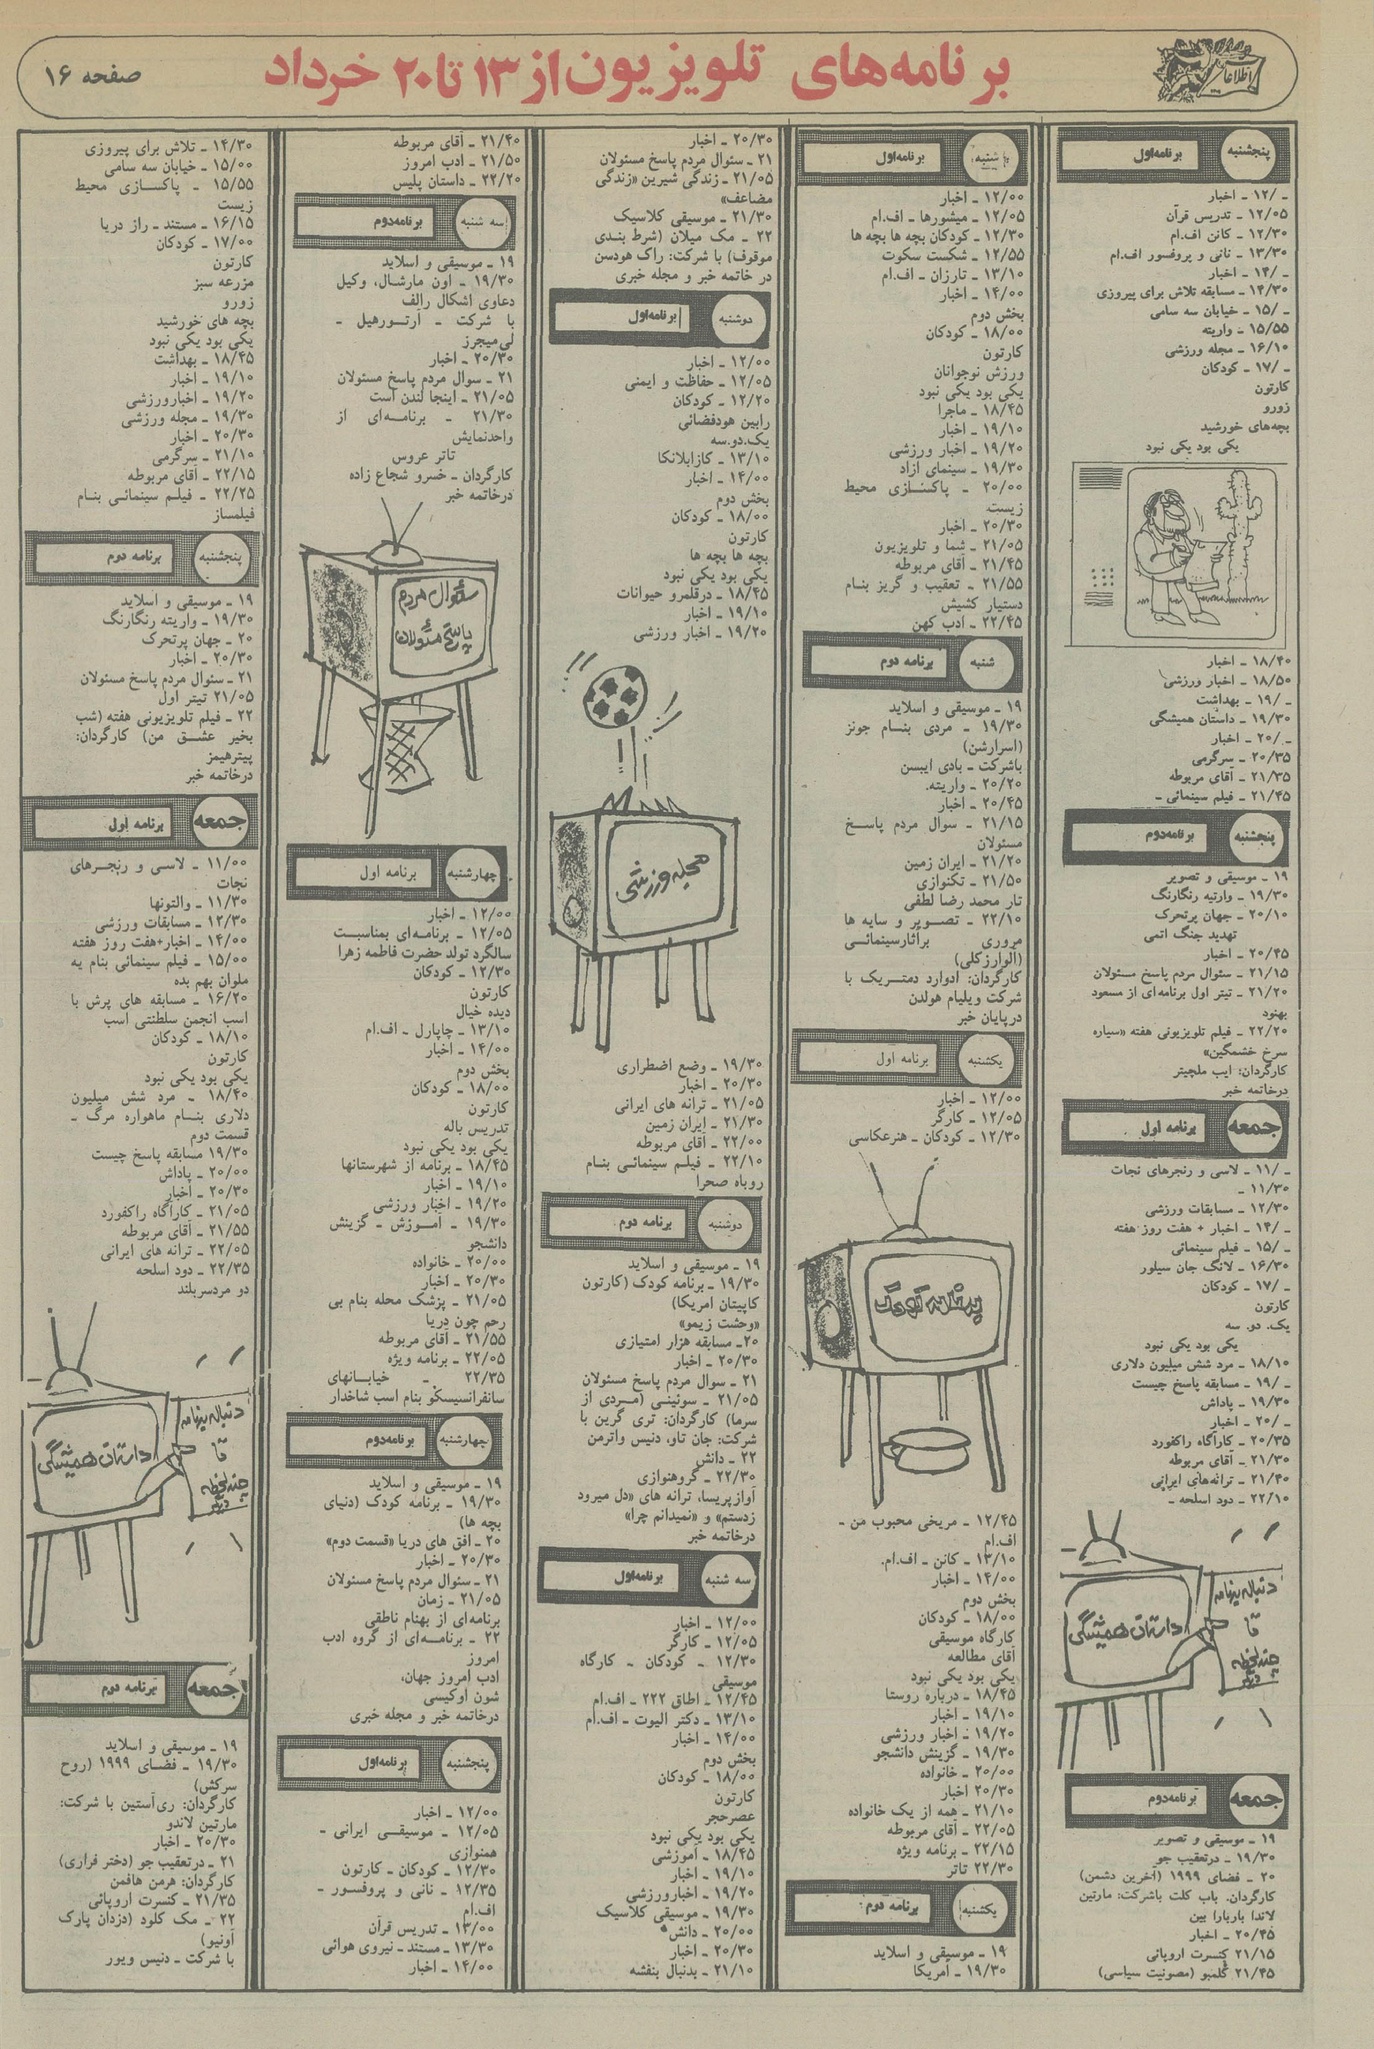 برنامه‌های تلویزیون از ۱۳ تا ۲۰ خرداد
صفحه ۱۶
اطلاعات
پنجشنبه
برنامه اول
ـ /۱۲ ـ اخبار
۱۲/۰۵ ـ تدریس قرآن
۱۲/۳۰ ـ کانن اف.ام
۱۳/۳۰ ـ نانی و پروفسور اف.ام
ـ /۱۴ ـ اخبار
۱۴/۳۰ ـ مسابقه تلاش برای پیروزی
ـ /۱۵ ـ خیابان سه سامی
۱۵/۵۵ ـ واریته
۱۶/۱۰ ـ مجله ورزشی
ـ /۱۷ ـ کودکان
کارتون
زورو
بچه‌های خورشید
یکی بود یکی نبود
۱۸/۴۰ ـ اخبار
۱۸/۵۰ ـ اخبار ورزشی
ـ /۱۹ ـ بهداشت
۱۹/۳۰ ـ داستان همیشگی
ـ /۲۰ ـ اخبار
۲۰/۳۵ ـ سرگرمی
۲۱/۳۵ ـ آقای مربوطه
۲۱/۴۵ ـ فیلم سینمائی ـ
پنجشنبه
برنامه‌دوم
۱۹ ـ موسیقی و تصویر
۱۹/۳۰ ـ وارتیه رنگارنگ
۲۰/۱۰ ـ جهان پرتحرک
تهدید جنگ اتمی
۲۰/۴۵ ـ اخبار
۲۱/۱۵ ـ سئوال مردم پاسخ مسئولان
۲۱/۲۰ ـ تیتر اول برنامه‌ای از مسعود
بهنود
۲۲/۲۰ ـ فیلم تلویزیونی هفته «سیاره
سرخ خشمگین»
کارگردان: ایب ملچیتر
درخاتمه خبر
جمعه
برنامه اول
ـ /۱۱ ـ لاسی و رنجرهای نجات
۱۱/۳۰ ـ
۱۲/۳۰ ـ مسابقات ورزشی
ـ /۱۴ ـ اخبار + هفت روز هفته
ـ /۱۵ ـ فیلم سینمائی
۱۶/۳۰ ـ لانگ جان سیلور
ـ /۱۷ ـ کودکان
کارتون
یک. دو. سه
یکی بود یکی نبود
۱۸/۱۰ ـ مرد شش میلیون دلاری
ـ /۱۹ ـ مسابقه پاسخ چیست
۱۹/۳۰ ـ پاداش
ـ /۲۰ ـ اخبار
۲۰/۳۵ ـ کارآگاه راکفورد
۲۱/۳۰ ـ آقای مربوطه
۲۱/۴۰ ـ ترانه‌های ایرانی
۲۲/۱۰ ـ دود اسلحه ـ
داستان همیشگی
دنباله برنامه
تا
چند لحظه
دیگر
جمعه
برنامه‌دوم
۱۹ ـ موسیقی و تصویر
۱۹/۳۰ ـ درتعقیب جو
۲۰ ـ فضای ۱۹۹۹ (آخرین دشمن)
کارگردان. باب کلت باشرکت: مارتین
لاندا باربارا بین
۲۰/۴۵ ـ اخبار
۲۱/۱۵ کنسرت اروپائی
۲۱/۴۵ کلمبو (مصونیت سیاسی)
شنبه
برنامه‌اول
۱۲/۰۰ ـ اخبار
۱۲/۰۵ ـ میشورها ـ اف.ام
۱۲/۳۰ ـ کودکان بچه ها بچه ها
۱۲/۵۵ ـ شکست سکوت
۱۳/۱۰ ـ تارزان ـ اف.ام
۱۴/۰۰ ـ اخبار
بخش دوم
۱۸/۰۰ ـ کودکان
کارتون
ورزش نوجوانان
یکی بود یکی نبود
۱۸/۴۵ ـ ماجرا
۱۹/۱۰ ـ اخبار
۱۹/۲۰ ـ اخبار ورزشی
۱۹/۳۰ ـ سینمای آزاد
۲۰/۰۰ ـ پاکسازی محیط
زیست
۲۰/۳۰ ـ اخبار
۲۱/۰۵ ـ شما و تلویزیون
۲۱/۴۵ ـ آقای مربوطه
۲۱/۵۵ ـ تعقیب و گریز بنام
دستیار کشیش
۲۲/۴۵ ـ ادب کهن
شنبه
برنامه دوم
۱۹ ـ موسیقی و اسلاید
۱۹/۳۰ ـ مردی بنام جونز
(اسرارشن)
باشرکت ـ بادی ایبسن
۲۰/۲۰ ـ واریته.
۲۰/۴۵ ـ اخبار
۲۱/۱۵ ـ سوال مردم پاسخ
مسئولان
۲۱/۲۰ ـ ایران زمین
۲۱/۵۰ ـ تکنوازی
تار محمد رضا لطفی
۲۲/۱۰ ـ تصویر و سایه ها
مروری برآثارسینمائی
(آلوارزکلی)
کارگردان: ادوارد دمتریک با
شرکت ویلیام هولدن
درپایان خبر
یکشنبه
برنامه اول
۱۲/۰۰ ـ اخبار
۱۲/۰۵ ـ کارگر
۱۲/۳۰ ـ کودکان ـ هنرعکاسی
برنامه کودک
۱۲/۴۵ ـ مریخی محبوب من ـ
اف.ام
۱۳/۱۰ ـ کانن ـ اف.ام.
۱۴/۰۰ ـ اخبار
بخش دوم
۱۸/۰۰ ـ کودکان
کارگاه موسیقی
آقای مطالعه
یکی بود یکی نبود
۱۸/۴۵ ـ درباره روستا
۱۹/۱۰ ـ اخبار
۱۹/۲۰ ـ اخبار ورزشی
۱۹/۳۰ ـ گزینش دانشجو
۲۰/۰۰ ـ خانواده
۲۰/۳۰ اخبار
۲۱/۱۰ ـ همه از یک خانواده
۲۲/۰۵ ـ آقای مربوطه
۲۲/۱۵ ـ برنامه ویژه
۲۲/۳۰ تاتر
یکشنبه
برنامه دوم
۱۹ ـ موسیقی و اسلاید
۱۹/۳۰ ـ آمریکا
۲۰/۳۰ ـ اخبار
۲۱ ـ سئوال مردم پاسخ مسئولان
۲۱/۰۵ ـ زندگی شیرین «زندگی
مضاعف»
۲۱/۳۰ ـ موسیقی کلاسیک
۲۲ ـ مک میلان (شرط بندی
موقوف) با شرکت: راک هودسن
در خاتمه خبر و مجله خبری
دوشنبه
برنامه‌اول
۱۲/۰۰ ـ اخبار
۱۲/۰۵ ـ حفاظت و ایمنی
۱۲/۲۰ ـ کودکان
رابین هودفضائی
یک.دو.سه
۱۳/۱۰ ـ کازابلانکا
۱۴/۰۰ ـ اخبار
بخش دوم
۱۸/۰۰ ـ کودکان
کارتون
بچه ها بچه ها
یکی بود یکی نبود
۱۸/۴۵ ـ درقلمرو حیوانات
۱۹/۱۰ ـ اخبار
۱۹/۲۰ ـ اخبار ورزشی
مجله ورزشی
۱۹/۳۰ ـ وضع اضطراری
۲۰/۳۰ ـ اخبار
۲۱/۰۵ ـ ترانه های ایرانی
۲۱/۳۰ ـ ایران زمین
۲۲/۰۰ ـ آقای مربوطه
۲۲/۱۰ ـ فیلم سینمائی بنام
روباه صحرا
دوشنبه
برنامه دوم
۱۹ ـ موسیقی و اسلاید
۱۹/۳۰ ـ برنامه کودک (کارتون
کاپیتان امریکا)
«وحشت زیمو»
۲۰ـ مسابقه هزار امتیازی
۲۰/۳۰ ـ اخبار
۲۱ ـ سوال مردم پاسخ مسئولان
۲۱/۰۵ ـ سوئینی (مردی از
سرما) کارگردان: تری گرین با
شرکت: جان تاو، دنیس واترمن
۲۲ ـ دانش
۲۲/۳۰ ـ گروهنوازی
آوازپریسا، ترانه های «دل میرود
زدستم» و «نمیدانم چرا»
درخاتمه خبر
سه شنبه
برنامه‌اول
۱۲/۰۰ ـ اخبار
۱۲/۰۵ ـ کارگر
۱۲/۳۰ ـ کودکان ـ کارگاه
موسیقی
۱۲/۴۵ ـ اطاق ۲۲۲ ـ اف.ام
۱۳/۱۰ ـ دکتر الیوت ـ اف.ام
۱۴/۰۰ ـ اخبار
بخش دوم
۱۸/۰۰ ـ کودکان
کارتون
عصرحجر
یکی بود یکی نبود
۱۸/۴۵ ـ آموزشی
۱۹/۱۰ ـ اخبار
۱۹/۲۰ ـ اخبارورزشی
۱۹/۳۰ ـ موسیقی کلاسیک
۲۰/۰۰ ـ دانش
۲۰/۳۰ ـ اخبار
۲۱/۱۰ ـ بدنبال بنفشه
۲۱/۴۰ ـ آقای مربوطه
۲۱/۵۰ ـ ادب امروز
۲۲/۲۰ ـ داستان پلیس
سه شنبه
برنامه‌دوم
۱۹ ـ موسیقی و اسلاید
۱۹/۳۰ ـ اون مارشال، وکیل
دعاوی اشکال رالف
با شرکت ـ آرتورهیل ـ
لی‌میجرز
۲۰/۳۰ ـ اخبار
۲۱ ـ سوال مردم پاسخ مسئولان
۲۱/۰۵ ـ اینجا لندن است
۲۱/۳۰ ـ برنامه‌ای از
واحدنمایش
تاتر عروس
کارگردان ـ خسرو شجاع زاده
درخاتمه خبر
سئوال مردم
پاسخ مسئولان
چهارشنبه
برنامه اول
۱۲/۰۰ ـ اخبار
۱۲/۰۵ ـ برنامه‌ای بمناسبت
سالگرد تولد حضرت فاطمه زهرا
۱۲/۳۰ ـ کودکان
کارتون
دیده خیال
۱۳/۱۰ ـ چاپارل ـ اف.ام
۱۴/۰۰ ـ اخبار
بخش دوم
۱۸/۰۰ ـ کودکان
کارتون
تدریس باله
یکی بود یکی نبود
۱۸/۴۵ ـ برنامه از شهرستانها
۱۹/۱۰ ـ اخبار
۱۹/۲۰ ـ اخبار ورزشی
۱۹/۳۰ ـ آموزش ـ گزینش
دانشجو
۲۰/۰۰ ـ خانواده
۲۰/۳۰ ـ اخبار
۲۱/۰۵ ـ پزشک محله بنام بی
رحم چون دریا
۲۱/۵۵ ـ آقای مربوطه
۲۲/۰۵ ـ برنامه ویژه
۲۲/۳۵ ـ خیابانهای
سانفرانسیسکو بنام اسب شاخدار
چهارشنبه
برنامه‌دوم
۱۹ ـ موسیقی و اسلاید
۱۹/۳۰ ـ برنامه کودک (دنیای
بچه ها)
۲۰ ـ افق های دریا «قسمت دوم»
۲۰/۳۰ ـ اخبار
۲۱ ـ سئوال مردم پاسخ مسئولان
۲۱/۰۵ ـ زمان
برنامه‌ای از بهنام ناطقی
۲۲ ـ برنامه‌ای از گروه ادب
امروز
ادب امروز جهان،
شون اوکیسی
درخاتمه خبر و مجله خبری
پنجشنبه
برنامه‌اول
۱۲/۰۰ ـ اخبار
۱۲/۰۵ ـ موسیقی ایرانی ـ
همنوازی
۱۲/۳۰ ـ کودکان ـ کارتون
۱۲/۳۵ ـ نانی و پروفسور ـ
اف.ام
۱۳/۰۰ ـ تدریس قرآن
۱۳/۳۰ ـ مستند ـ نیروی هوائی
۱۴/۰۰ ـ اخبار
۱۴/۳۰ ـ تلاش برای پیروزی
۱۵/۰۰ ـ خیابان سه سامی
۱۵/۵۵ ـ پاکسازی محیط
زیست
۱۶/۱۵ ـ مستند ـ راز دریا
۱۷/۰۰ ـ کودکان
کارتون
مزرعه سبز
زورو
بچه های خورشید
یکی بود یکی نبود
۱۸/۴۵ ـ بهداشت
۱۹/۱۰ ـ اخبار
۱۹/۲۰ ـ اخبارورزشی
۱۹/۳۰ ـ مجله ورزشی
۲۰/۳۰ ـ اخبار
۲۱/۱۰ ـ سرگرمی
۲۲/۱۵ ـ آقای مربوطه
۲۲/۲۵ ـ فیلم سینمائی بنام
فیلمساز
پنجشنبه
برنامه دوم
۱۹ ـ موسیقی و اسلاید
۱۹/۳۰ ـ واریته رنگارنگ
۲۰ ـ جهان پرتحرک
۲۰/۳۰ ـ اخبار
۲۱ ـ سئوال مردم پاسخ مسئولان
۲۱/۰۵ تیتر اول
۲۲ ـ فیلم تلویزیونی هفته (شب
بخیر عشق من) کارگردان:
پیترهیمز
درخاتمه خبر
جمعه
برنامه اول
۱۱/۰۰ ـ لاسی و رنجرهای
نجات
۱۱/۳۰ ـ والتونها
۱۲/۳۰ ـ مسابقات ورزشی
۱۴/۰۰ ـ اخبار+هفت روز هفته
۱۵/۰۰ ـ فیلم سینمائی بنام یه
ملوان بهم بده
۱۶/۲۰ ـ مسابقه های پرش با
اسب انجمن سلطنتی اسب
۱۸/۱۰ ـ کودکان
کارتون
یکی بود یکی نبود
۱۸/۴۰ ـ مرد شش میلیون
دلاری بنام ماهواره مرگ ـ
قسمت دوم
۱۹/۳۰ مسابقه پاسخ چیست
۲۰/۰۰ ـ پاداش
۲۰/۳۰ ـ اخبار
۲۱/۰۵ ـ کارآگاه راکفورد
۲۱/۵۵ ـ آقای مربوطه
۲۲/۰۵ ـ ترانه های ایرانی
۲۲/۳۵ ـ دود اسلحه
دو مردسربلند
داستان همیشگی
دنباله برنامه
تا
چند لحظه
دیگر
جمعه
برنامه دوم
۱۹ ـ موسیقی و اسلاید
۱۹/۳۰ ـ فضای ۱۹۹۹ (روح
سرکش)
کارگردان: ری‌آستین با شرکت:
مارتین لاندو
۲۰/۳۰ ـ اخبار
۲۱ ـ درتعقیب جو (دختر فراری)
کارگردان: هرمن هافمن
۲۱/۳۵ ـ کنسرت اروپائی
۲۲ ـ مک کلود (دزدان پارک
آونیو)
با شرکت ـ دنیس ویور